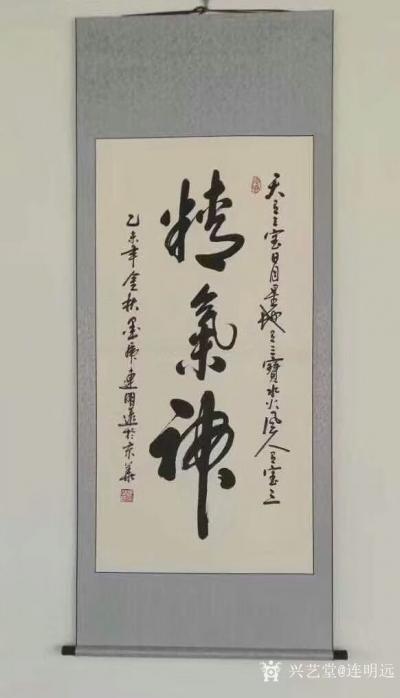 天有三宝日月星地有三寶水火风人有宝三
精氣神
乙未年金秋墨虎連明遠於京華
兴艺堂@连明远